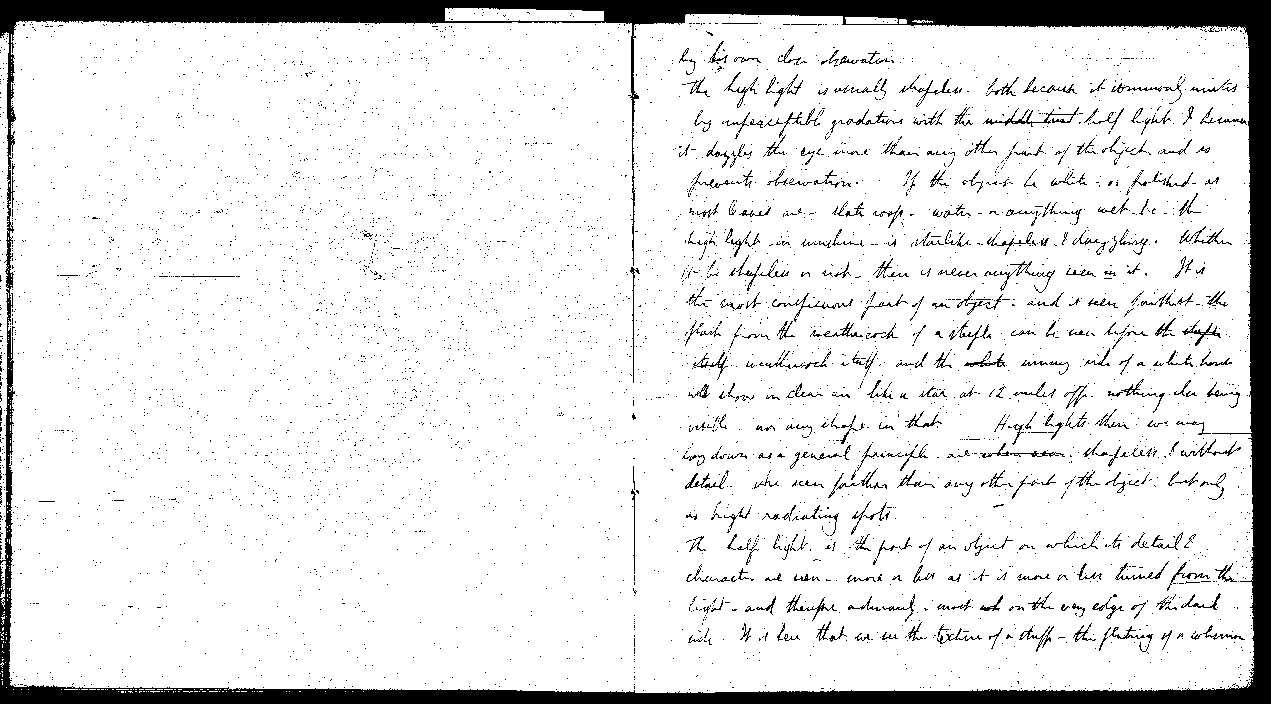 by his own close observation.
The high light is usually shapeless. both because it commonly unites
by imperceptible gradations with the middle tint half light. & because
it dazzles the eye more than any other part of the object and so
prevents observation. If the object be white. or polished - as
most leaves are - slate roofs - water - or anything wet. &c. the
high light - in sunshine - is starlike - shapeless & dazzling. Whether
it be shapeless or not - there is never anything seen in it. It is
the most conspicuous part of an object. and is seen farthest - the
spark from the weathercock of a steeple can be seen before the steeple
itself weathercock itself. and the white sunny side of a white house
will show in clear air like a star at 12 miles off. nothing else being
visible nor any shape in that High lights then we may
lay down as a general principle are when seen. shapeless & without
detail. are seen farther than any other part of the object. but only
as bright radiating spots
The half light. is the part of an object on which its detail &
character are seen - more or less as it is more or less turned from the
light - and therefore ordinarily. most on the very edge of the dark
side. It is here that we see the texture of a stuff - the fluting of a column